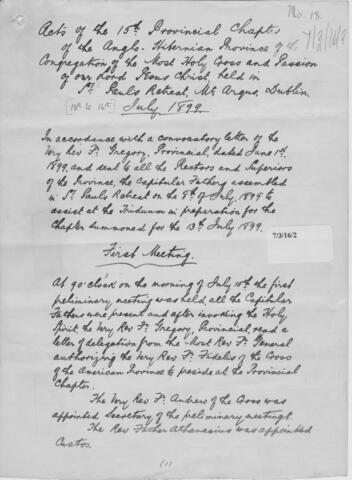 No. 18.
7/3/16/2
Acts of the 15th Provincial Chapter
of the Anglo-Hibernian Province of the
Congregation of the Most Holy Cross and Passion
of our Lord Jesus Christ, held in
St. Pauls Retreat, Mt. Argus, Dublin.
July 1899
In accordance with a convocatory letter of the
Very Rev Fr. Gregory, Provincial, dated June 1st,
1899, and sent to all the Rectors and Superiors
of the Province, the Capitular Fathers assembled
in St. Pauls Retreat on the 8th of July, 1899 to
assist at the Triduum in preparation for the
Chapter summoned for the 13th July 1899.
7/3/16/2
First Meeting.
At 9 o'clock on the morning of July 10th the first
preliminary meeting was held, all the Capitular
Fathers were present and after invoking the Holy
Spirit, the Very Rev Fr. Gregory, Provincial, read a
letter of delegation from the Most Rev Fr. General
authorizing the Very Rev Fr. Fidelis of the Cross
of the American Province to preside at the Provincial
Chapter.
The Very Rev Fr. Andrew of the Cross was
appointed Secretary of the preliminary meetings.
The Rev Father Athanasius was appointed
Custos.
(1)